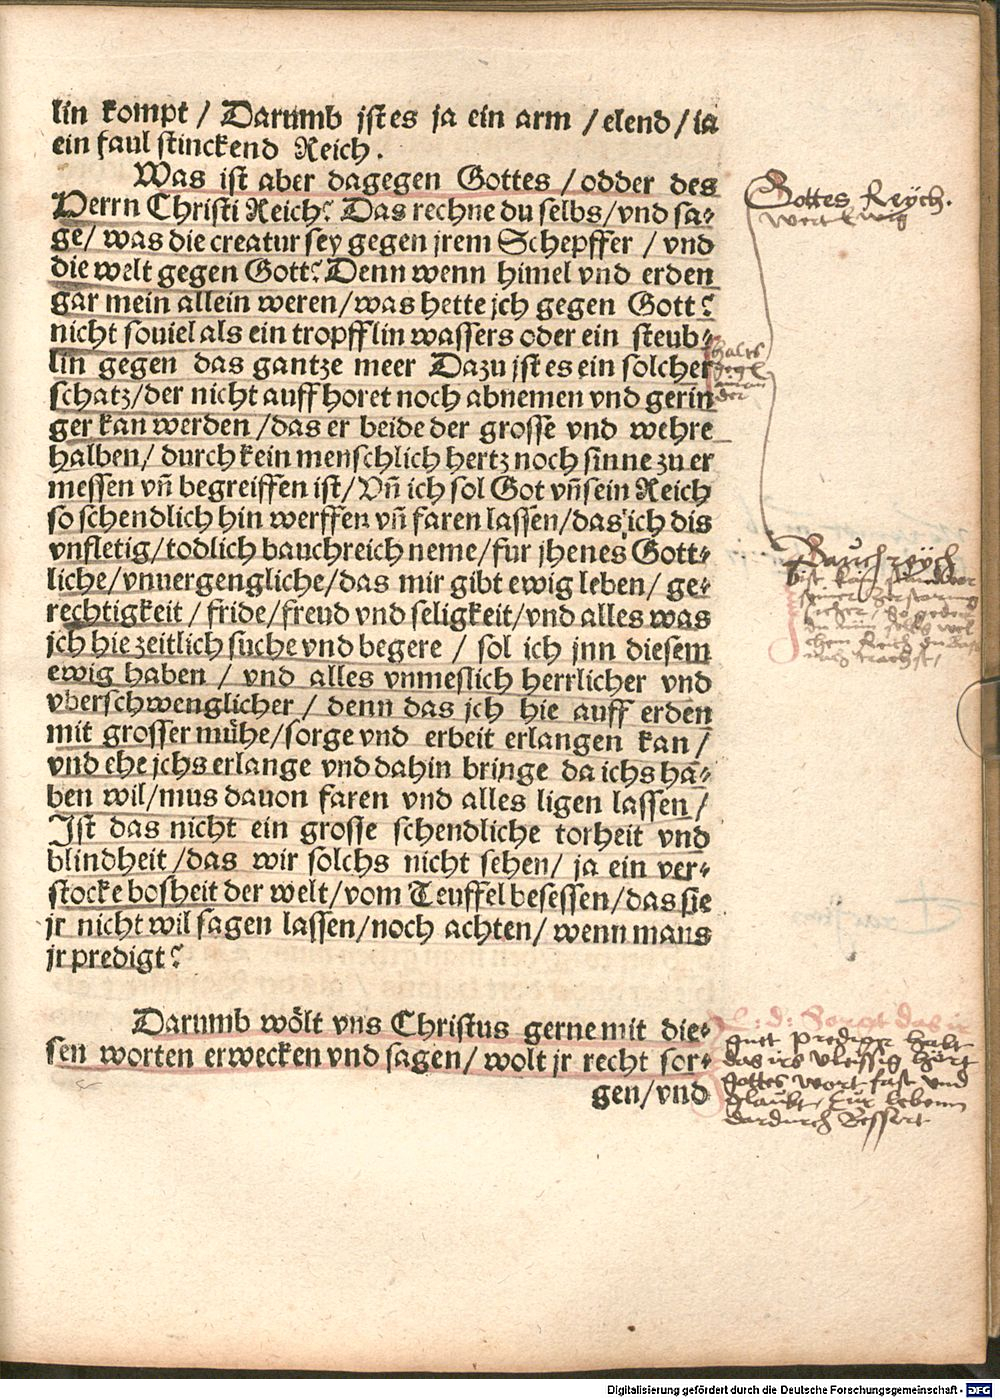 lin kompt / Darumb jst es ja ein arm / elend / ia
ein faul stinckend Reich.
Was ist aber dagegen Gottes / odder des
Herrn Christi Reich? Das rechne du selbs / vnd sa⸗
ge / was die creatur sey gegen jrem Schepffer / vnd
die welt gegen Gott? Denn wenn himel vnd erden
gar mein allein weren / was hette jch gegen Gott?
nicht souiel als ein tropfflin wassers oder ein steub⸗
lin gegen das gantze meer Dazu jst es ein solcher
schatz / der nicht auff horet noch abnemen vnd gerin
ger kan werden / das er beide der grosse vnd wehre
halben / durch kein menschlich hertz noch sinne zu er
messen vñ begreiffen ist / Vñ ich sol Got vñ sein Reich
so schendlich hin werffen vñ faren lassen / das ich dis
vnfletig / todlich bauchreich neme / fur jhenes Gott⸗
liche / vnuergengliche / das mir gibt ewig leben / ge⸗
rechtigkeit / fride / freud vnd seligkeit / vnd alles was
jch hie zeitlich suche vnd begere / sol ich jnn diesem
ewig haben / vnd alles vnmeslich herrlicher vnd
vberschwenglicher / denn das jch hie auff erden
mit grosser mühe / sorge vnd erbeit erlangen kan /
vnd ehe jchs erlange vnd dahin bringe da ichs ha⸗
ben wil / mus dauon faren vnd alles ligen lassen /
Ist das nicht ein grosse schendliche torheit vnd
blindheit / das wir solchs nicht sehen / ja ein ver⸗
stocke bosheit der welt / vom Teuffel besessen / das sie
jr nicht wil sagen lassen / noch achten / wenn mans
jr predigt?
Darumb wölt vns Christus gerne mit die⸗
sen worten erwecken vnd sagen / wolt jr recht sor⸗
gen / vnd
Gottes Reÿch.
wert Ewig
halts
gegē
ainan
der
Bauchreÿch
.: d: Sorgt das ir
guet prediger habt
das irs vleissig hört
gottes wort fast vnd
glaubt, Eur lebenn
dardurch Bessert
Digitalisierung gefördert durch die Deutsche Forschungsgemeinschaft - DFG